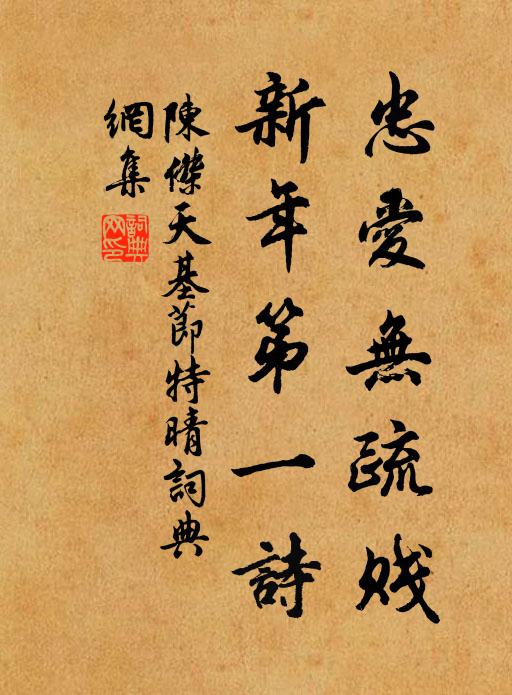 忠愛無疏賤
新年第一詩
陳傑天基節特晴詞典
網集
詞典網印